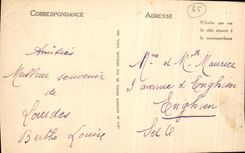 CORRESPONDANCE
ADRESSE
65
N'écrire que sur
le côté réservé à
la correspondance
Amitiés
Meilleur souvenir
de
Lourdes
Berthe Louise
Mme et Mlle Maurice
3 avenue d'Enghien
Enghien
S et O